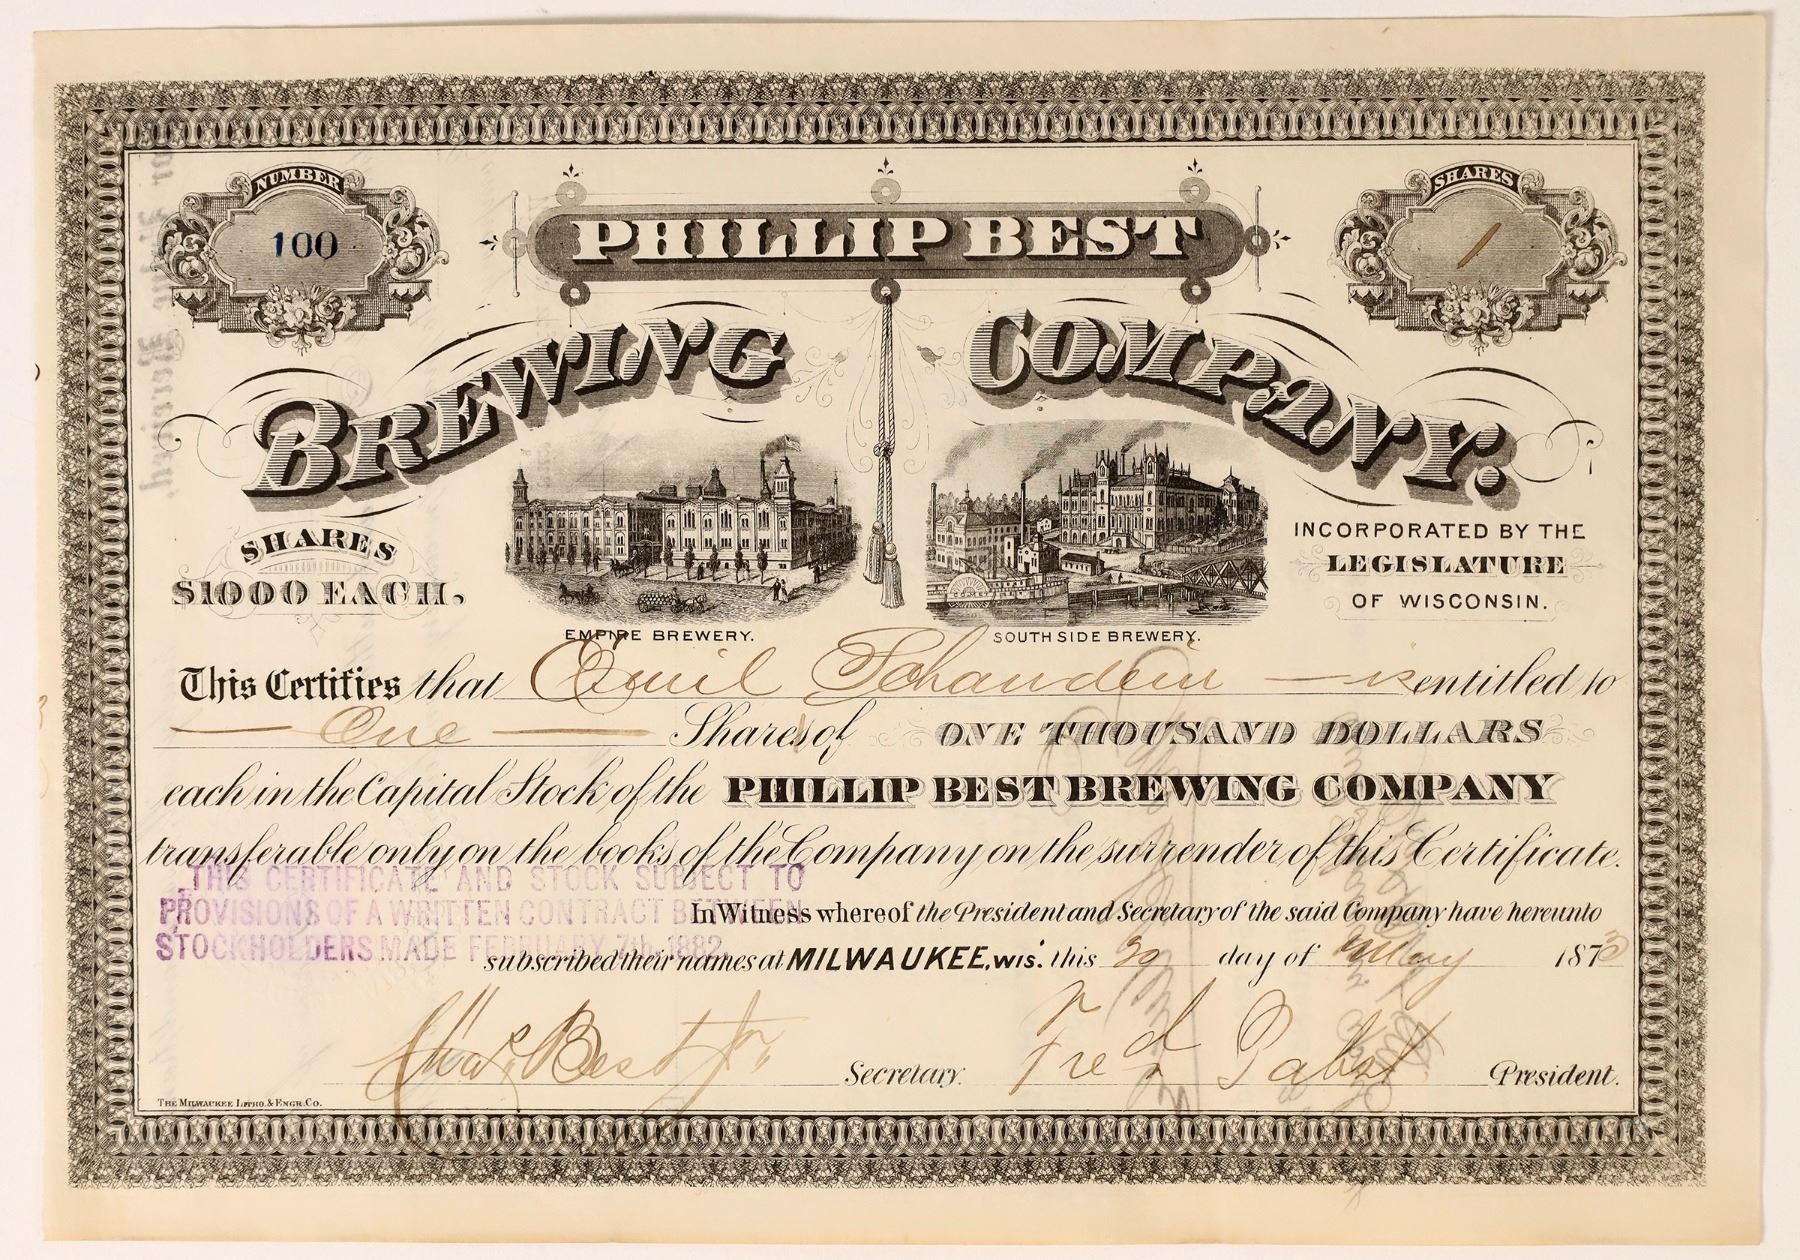 NUMBER
100
SHARES
1
PHILLIP BEST
BREWING COMPANY.
SHARES
$1000 EACH.
INCORPORATED BY THE
LEGISLATURE
OF WISCONSIN.
EMPIRE BREWERY.
SOUTH SIDE BREWERY.
This Certifies that Emil Schandein is entitled to
One Shares of ONE THOUSAND DOLLARS
each in the Capital Stock of the PHILLIP BEST BREWING COMPANY
transferable only on the books of the Company on the surrender of this Certificate.
THIS CERTIFICATE AND STOCK SUBJECT TO
PROVISIONS OF A WRITTEN CONTRACT BETWEEN
STOCKHOLDERS MADE FEBRUARY 7th, 1882.
In Witness whereof the President and Secretary of the said Company have hereunto
subscribed their names at MILWAUKEE, WIS. this 30 day of May 1873
Chas. Best Jr. Secretary.
Fred Pabst President.
THE MILWAUKEE LITHO. & ENGR. CO.